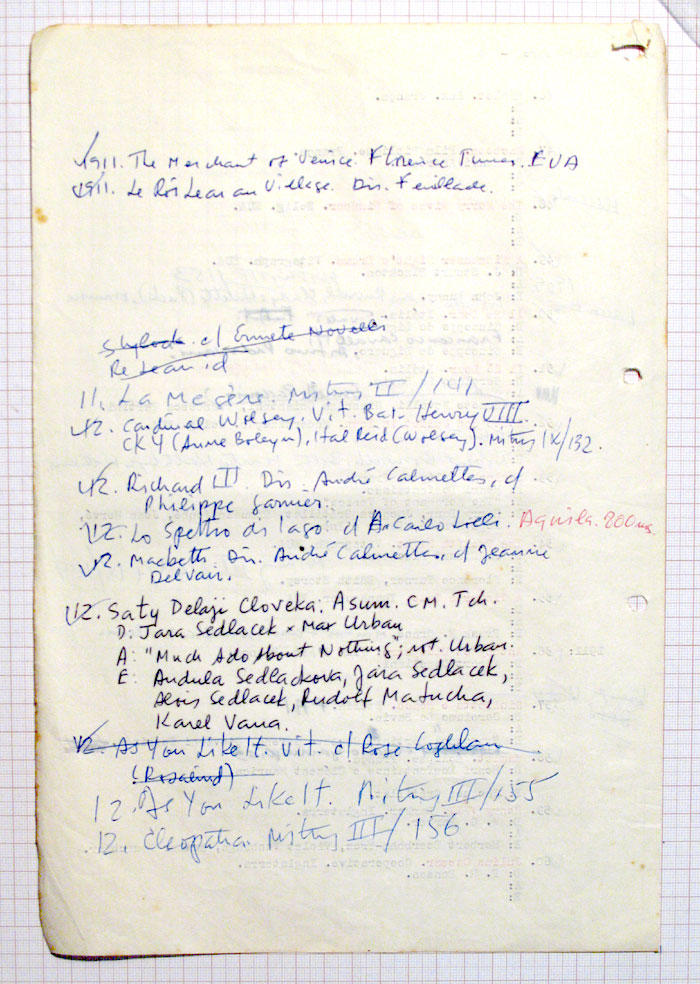 1911. The Merchant of Venice. Florence Turner. EUA
1911. Le Roi Lear au Village. Dir. Feuillade.
Shylock c/ Ermete Novelli
Re Lear id
11. La Mégère. Mitry II/141
12. Cardinal Wolsey. Vit. Bas. Henry VIII.
CKY (Anne Boleyn), Hal Reid (Wolsey). Mitry IX/132.
12. Richard III. Dir. André Calmettes, c/
Philippe Garnier.
12. Lo Spettro di Iago c/ A. Carlo Lioli. Aquila. 200 ms.
12. Macbeth. Dir. André Calmettes, c/ Jeanne
Delvair.
12. Saty Delaji Cloveka. Asum. C.M. Tch.
D: Jara Sedlacek x Max Urban
A: "Much Ado About Nothing"; rot. Urban.
E: Andula Sedlackova, Jara Sedlacek,
Alois Sedlacek, Rudolf Matucha,
Karel Vana.
12. As You Like It. Vit. c/ Rose Coghlan
(Rosalind)
12. As You Like It. Mitry III/155
12. Cleopatra. Mitry III/156